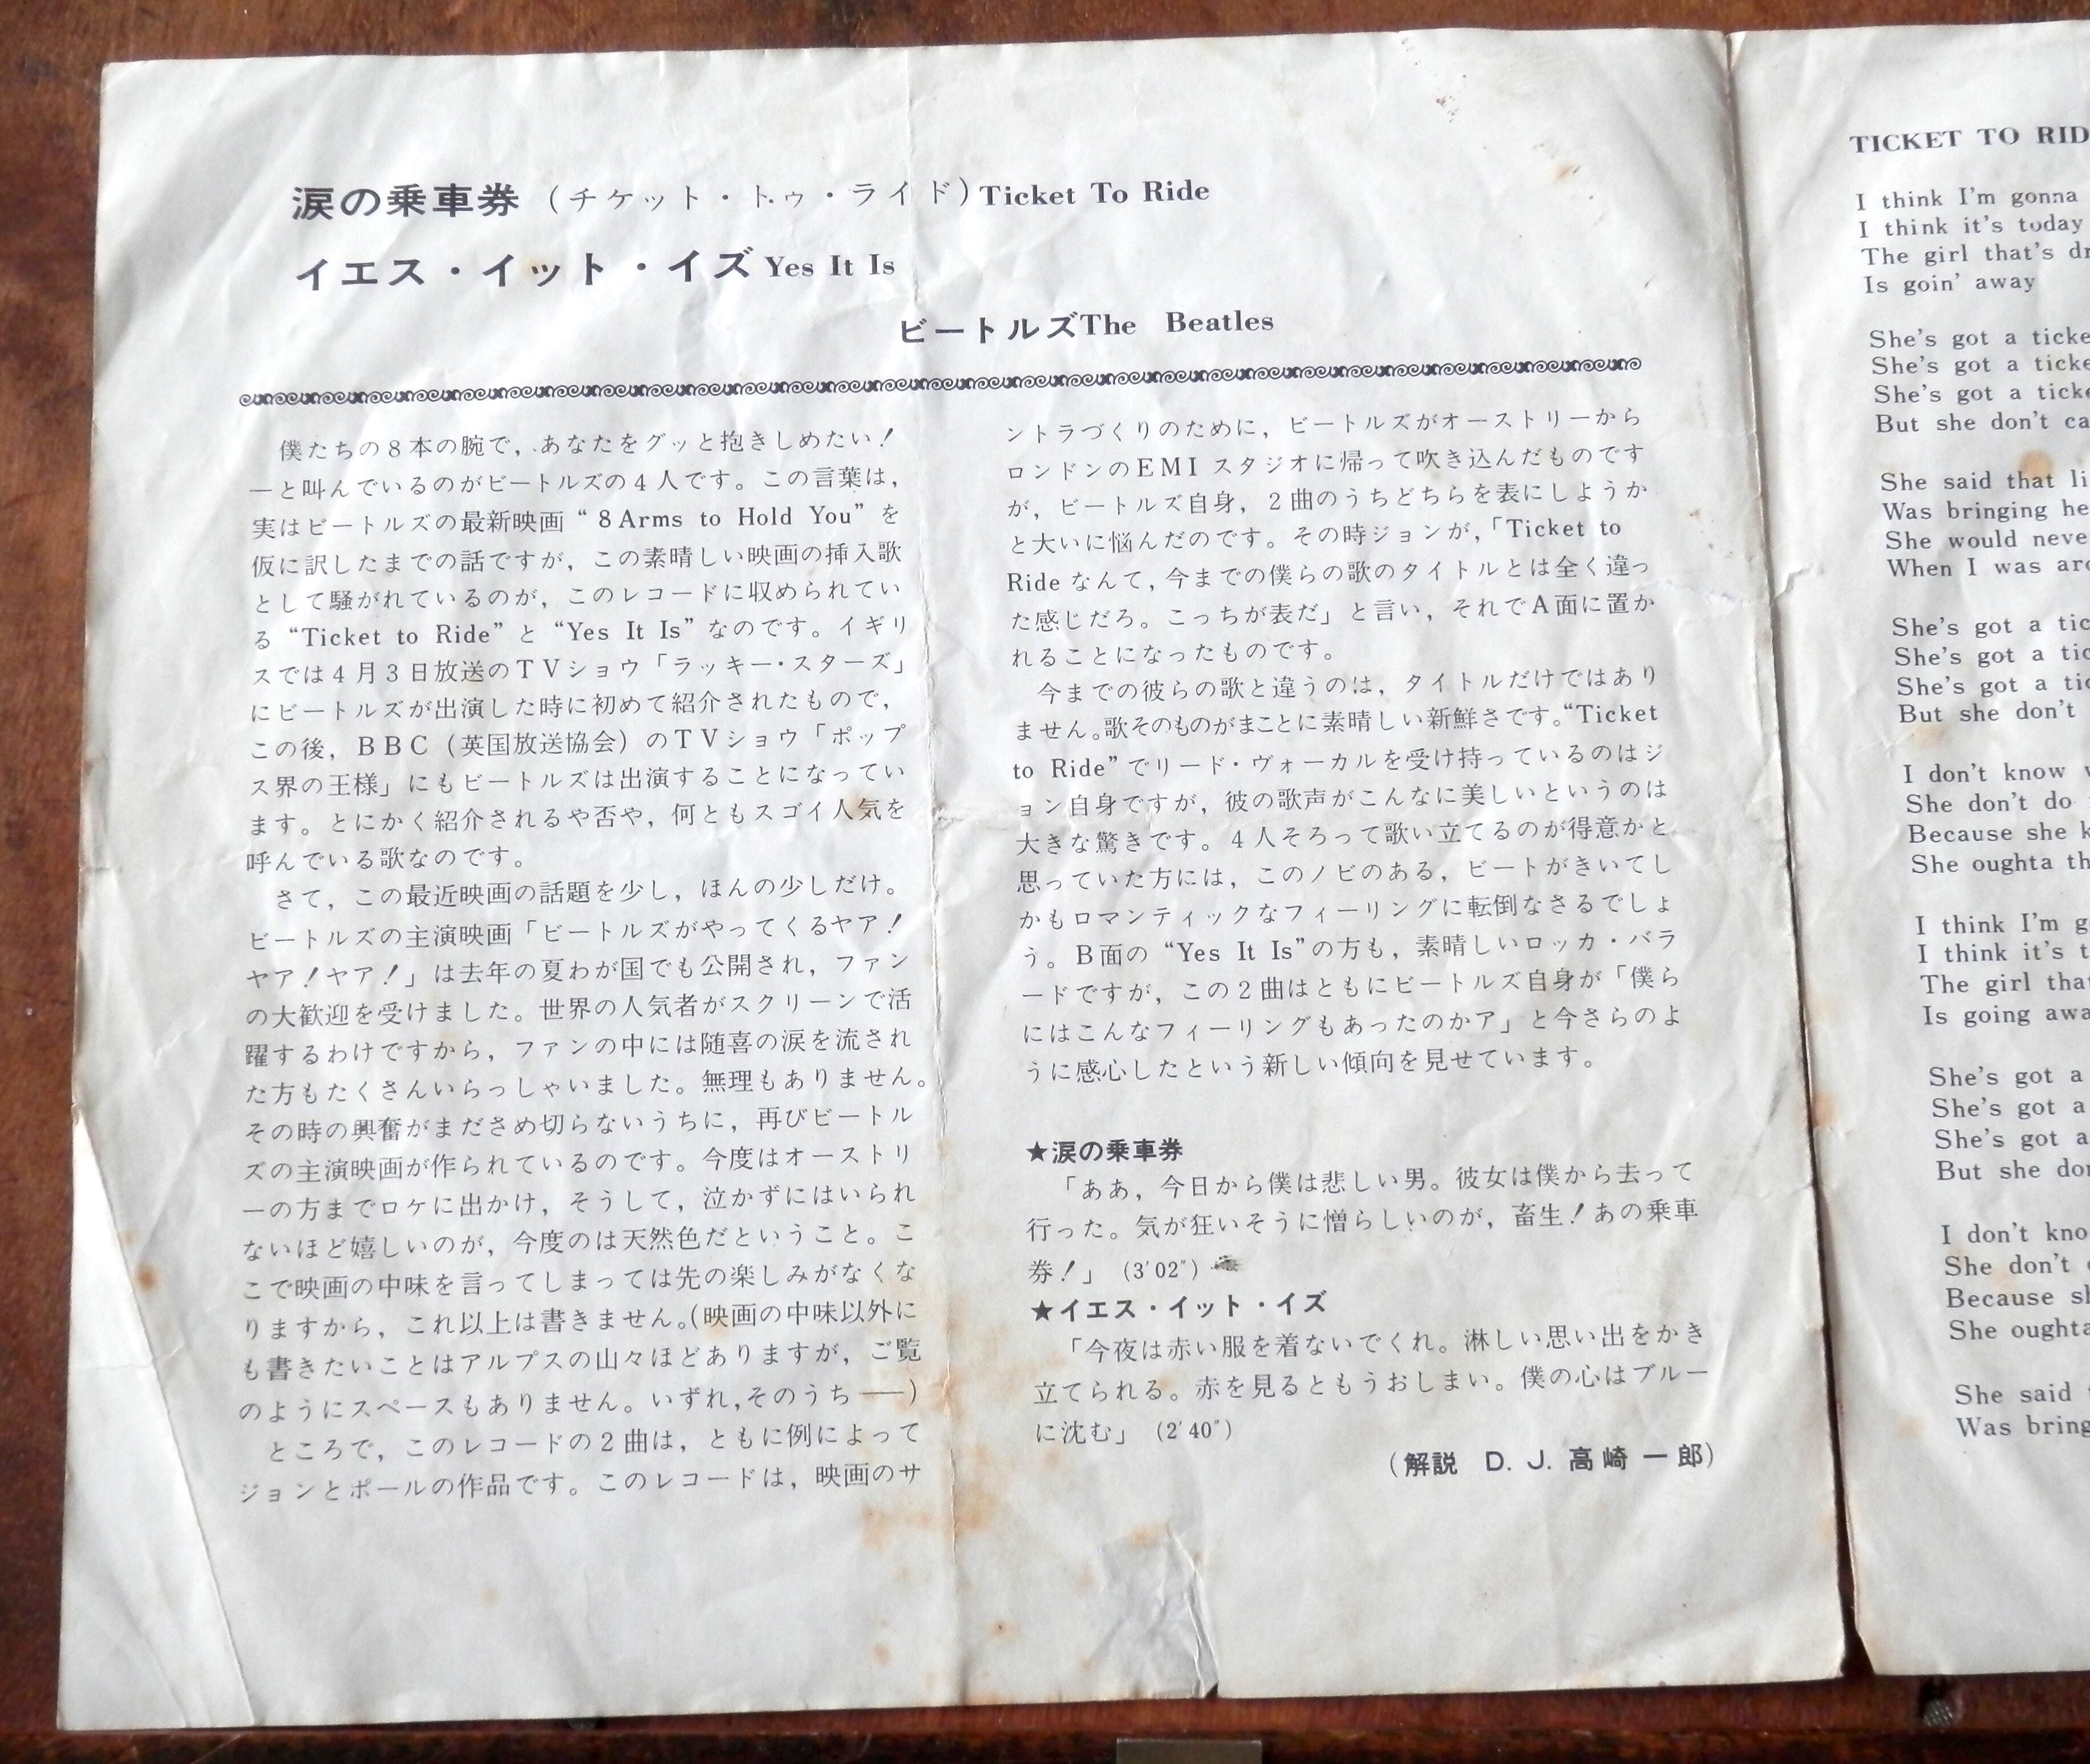 涙の乗車券 (チケット・トゥ・ライド) Ticket To Ride
イエス・イット・イズ Yes It Is
ビートルズ The Beatles
僕たちの8本の腕で,あなたをグッと抱きしめたい!
―と叫んでいるのがビートルズの4人です。この言葉は,
実はビートルズの最新映画“8 Arms to Hold You”を
仮に訳したまでの話ですが,この素晴しい映画の挿入歌
として騒がれているのが,このレコードに収められてい
る“Ticket to Ride”と“Yes It Is”なのです。イギリ
スでは4月3日放送のTVショウ「ラッキー・スターズ」
にビートルズが出演した時に初めて紹介されたもので,
この後,BBC(英国放送協会)のTVショウ「ポップ
ス界の王様」にもビートルズは出演することになってい
ます。とにかく紹介されるや否や,何ともスゴイ人気を
呼んでいる歌なのです。
さて,この最近映画の話題を少し,ほんの少しだけ。
ビートルズの主演映画「ビートルズがやってくるヤア!
ヤア!ヤア!」は去年の夏わが国でも公開され,ファン
の大歓迎を受けました。世界の人気者がスクリーンで活
躍するわけですから,ファンの中には随喜の涙を流され
た方もたくさんいらっしゃいました。無理もありません。
その時の興奮がまださめ切らないうちに,再びビートル
ズの主演映画が作られているのです。今度はオーストリ
ーの方までロケに出かけ,そうして,泣かずにはいられ
ないほど嬉しいのが,今度のは天然色だということ。こ
こで映画の中味を言ってしまっては先の楽しみがなくな
りますから,これ以上は書きません。(映画の中味以外に
も書きたいことはアルプスの山々ほどありますが,ご覧
のようにスペースもありません。いずれ,そのうち――)
ところで,このレコードの2曲は,ともに例によって
ジョンとポールの作品です。このレコードは,映画のサ
ントラづくりのために,ビートルズがオーストリーから
ロンドンのEMIスタジオに帰って吹き込んだものです
が,ビートルズ自身,2曲のうちどちらを表にしようか
と大いに悩んだのです。その時ジョンが,「Ticket to
Ride なんて,今までの僕らの歌のタイトルとは全く違っ
た感じだろ。こっちが表だ」と言い,それでA面に置か
れることになったものです。
今までの彼らの歌と違うのは,タイトルだけではあり
ません。歌そのものがまことに素晴しい新鮮さです。“Ticket
to Ride”でリード・ヴォーカルを受け持っているのはジ
ョン自身ですが,彼の歌声がこんなに美しいというのは
大きな驚きです。4人そろって歌い立てるのが得意かと
思っていた方には,このノビのある,ビートがきいてし
かもロマンティックなフィーリングに転倒なさるでしょ
う。B面の“Yes It Is”の方も,素晴しいロッカ・バラ
ードですが,この2曲はともにビートルズ自身が「僕ら
にはこんなフィーリングもあったのかア」と今さらのよ
うに感心したという新しい傾向を見せています。
★涙の乗車券
「ああ,今日から僕は悲しい男。彼女は僕から去って
行った。気が狂いそうに憎らしいのが,畜生!あの乗車
券!」(3′02″)
★イエス・イット・イズ
「今夜は赤い服を着ないでくれ。淋しい思い出をかき
立てられる。赤を見るともうおしまい。僕の心はブルー
に沈む」(2′40″)
(解説 D. J. 高崎一郎)
TICKET TO RID
I think I'm gonna
I think it's today
The girl that's dr
Is goin' away
She's got a ticke
She's got a ticke
She's got a ticke
But she don't ca
She said that li
Was bringing he
She would neve
When I was aro
She's got a tic
She's got a tic
She's got a tic
But she don't
I don't know
She don't do
Because she k
She oughta th
I think I'm g
I think it's t
The girl tha
Is going awa
She's got a
She's got a
She's got a
But she don
I don't kno
She don't
Because sh
She oughta
She said
Was bring